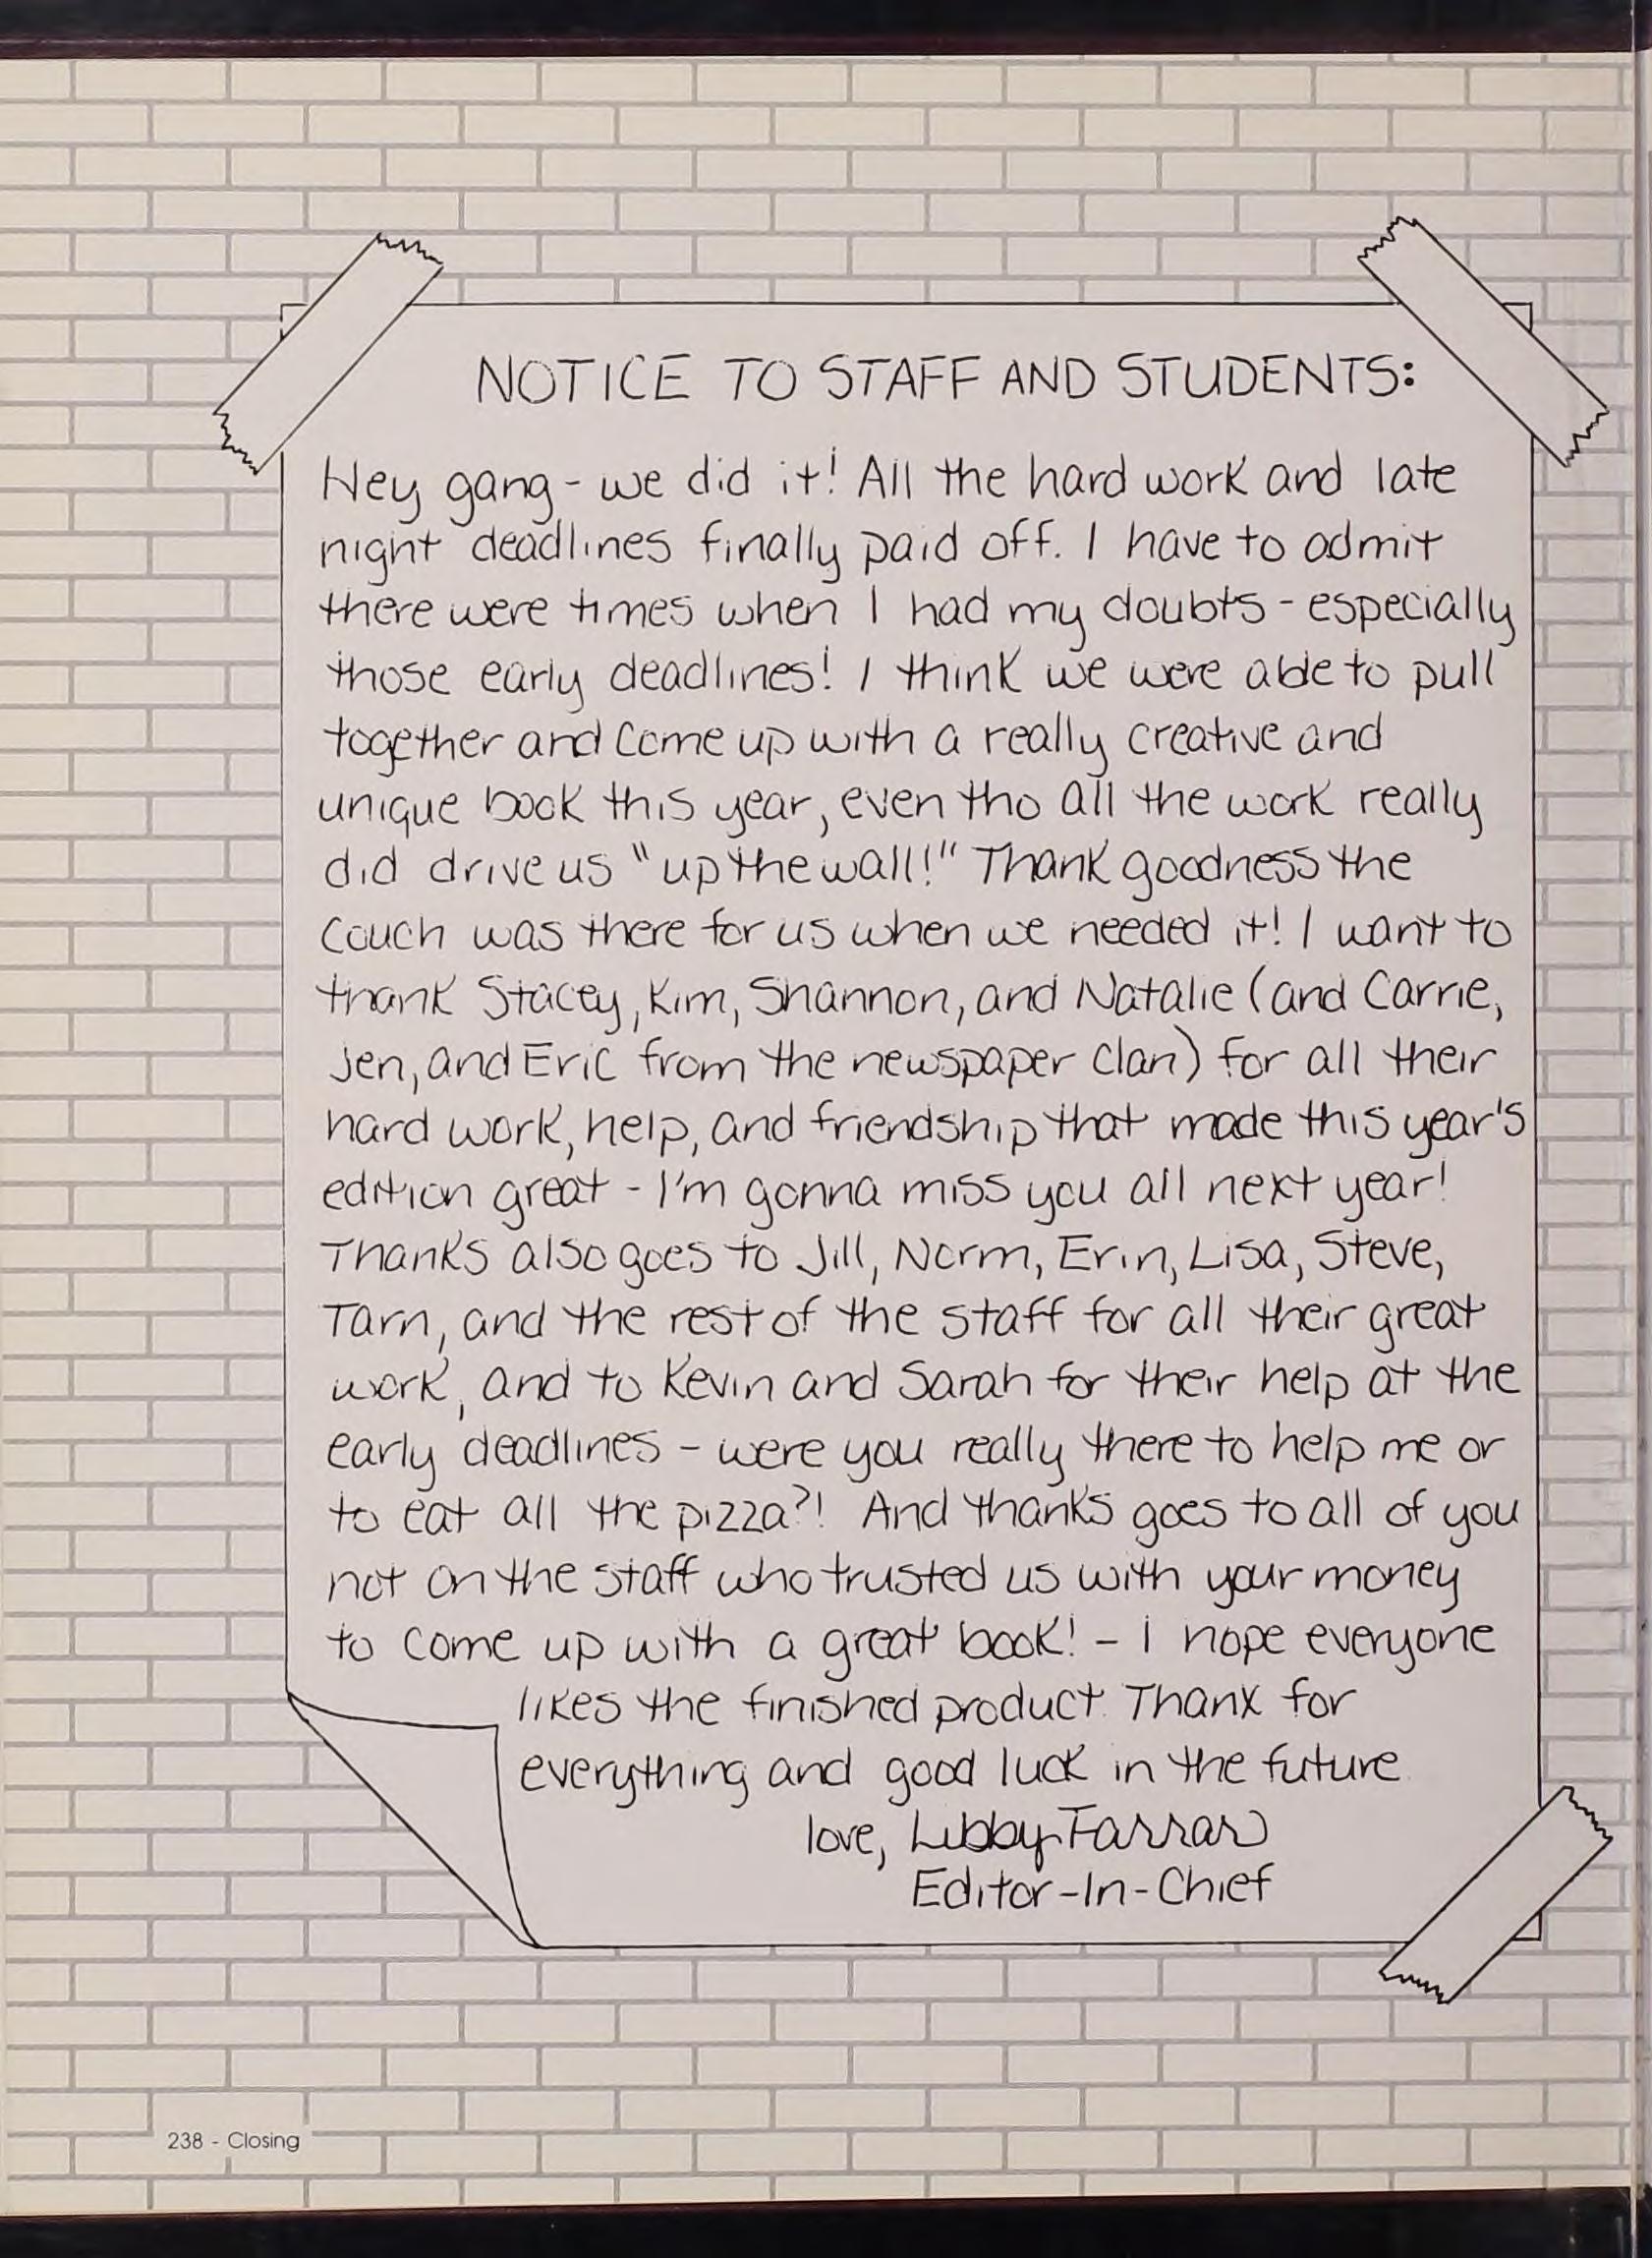 NOTICE TO STAFF AND STUDENTS:
Hey gang - we did it! All the hard work and late
night deadlines finally paid off. I have to admit
there were times when I had my doubts - especially
those early deadlines! I think we were able to pull
together and come up with a really creative and
unique book this year, even tho all the work really
did drive us "up the wall!" Thank goodness the
couch was there for us when we needed it! I want to
thank Stacey, Kim, Shannon, and Natalie (and Carrie,
Jen, and Eric from the newspaper clan) for all their
hard work, help, and friendship that made this year's
edition great - I'm gonna miss you all next year!
Thanks also goes to Jill, Norm, Erin, Lisa, Steve,
Tarn, and the rest of the staff for all their great
work, and to Kevin and Sarah for their help at the
early deadlines - were you really there to help me or
to eat all the pizza?! And thanks goes to all of you
not on the staff who trusted us with your money
to come up with a great book! - I hope everyone
likes the finished product. Thanx for
everything and good luck in the future.
love, Libby Farrar
Editor-In-Chief
238 - Closing